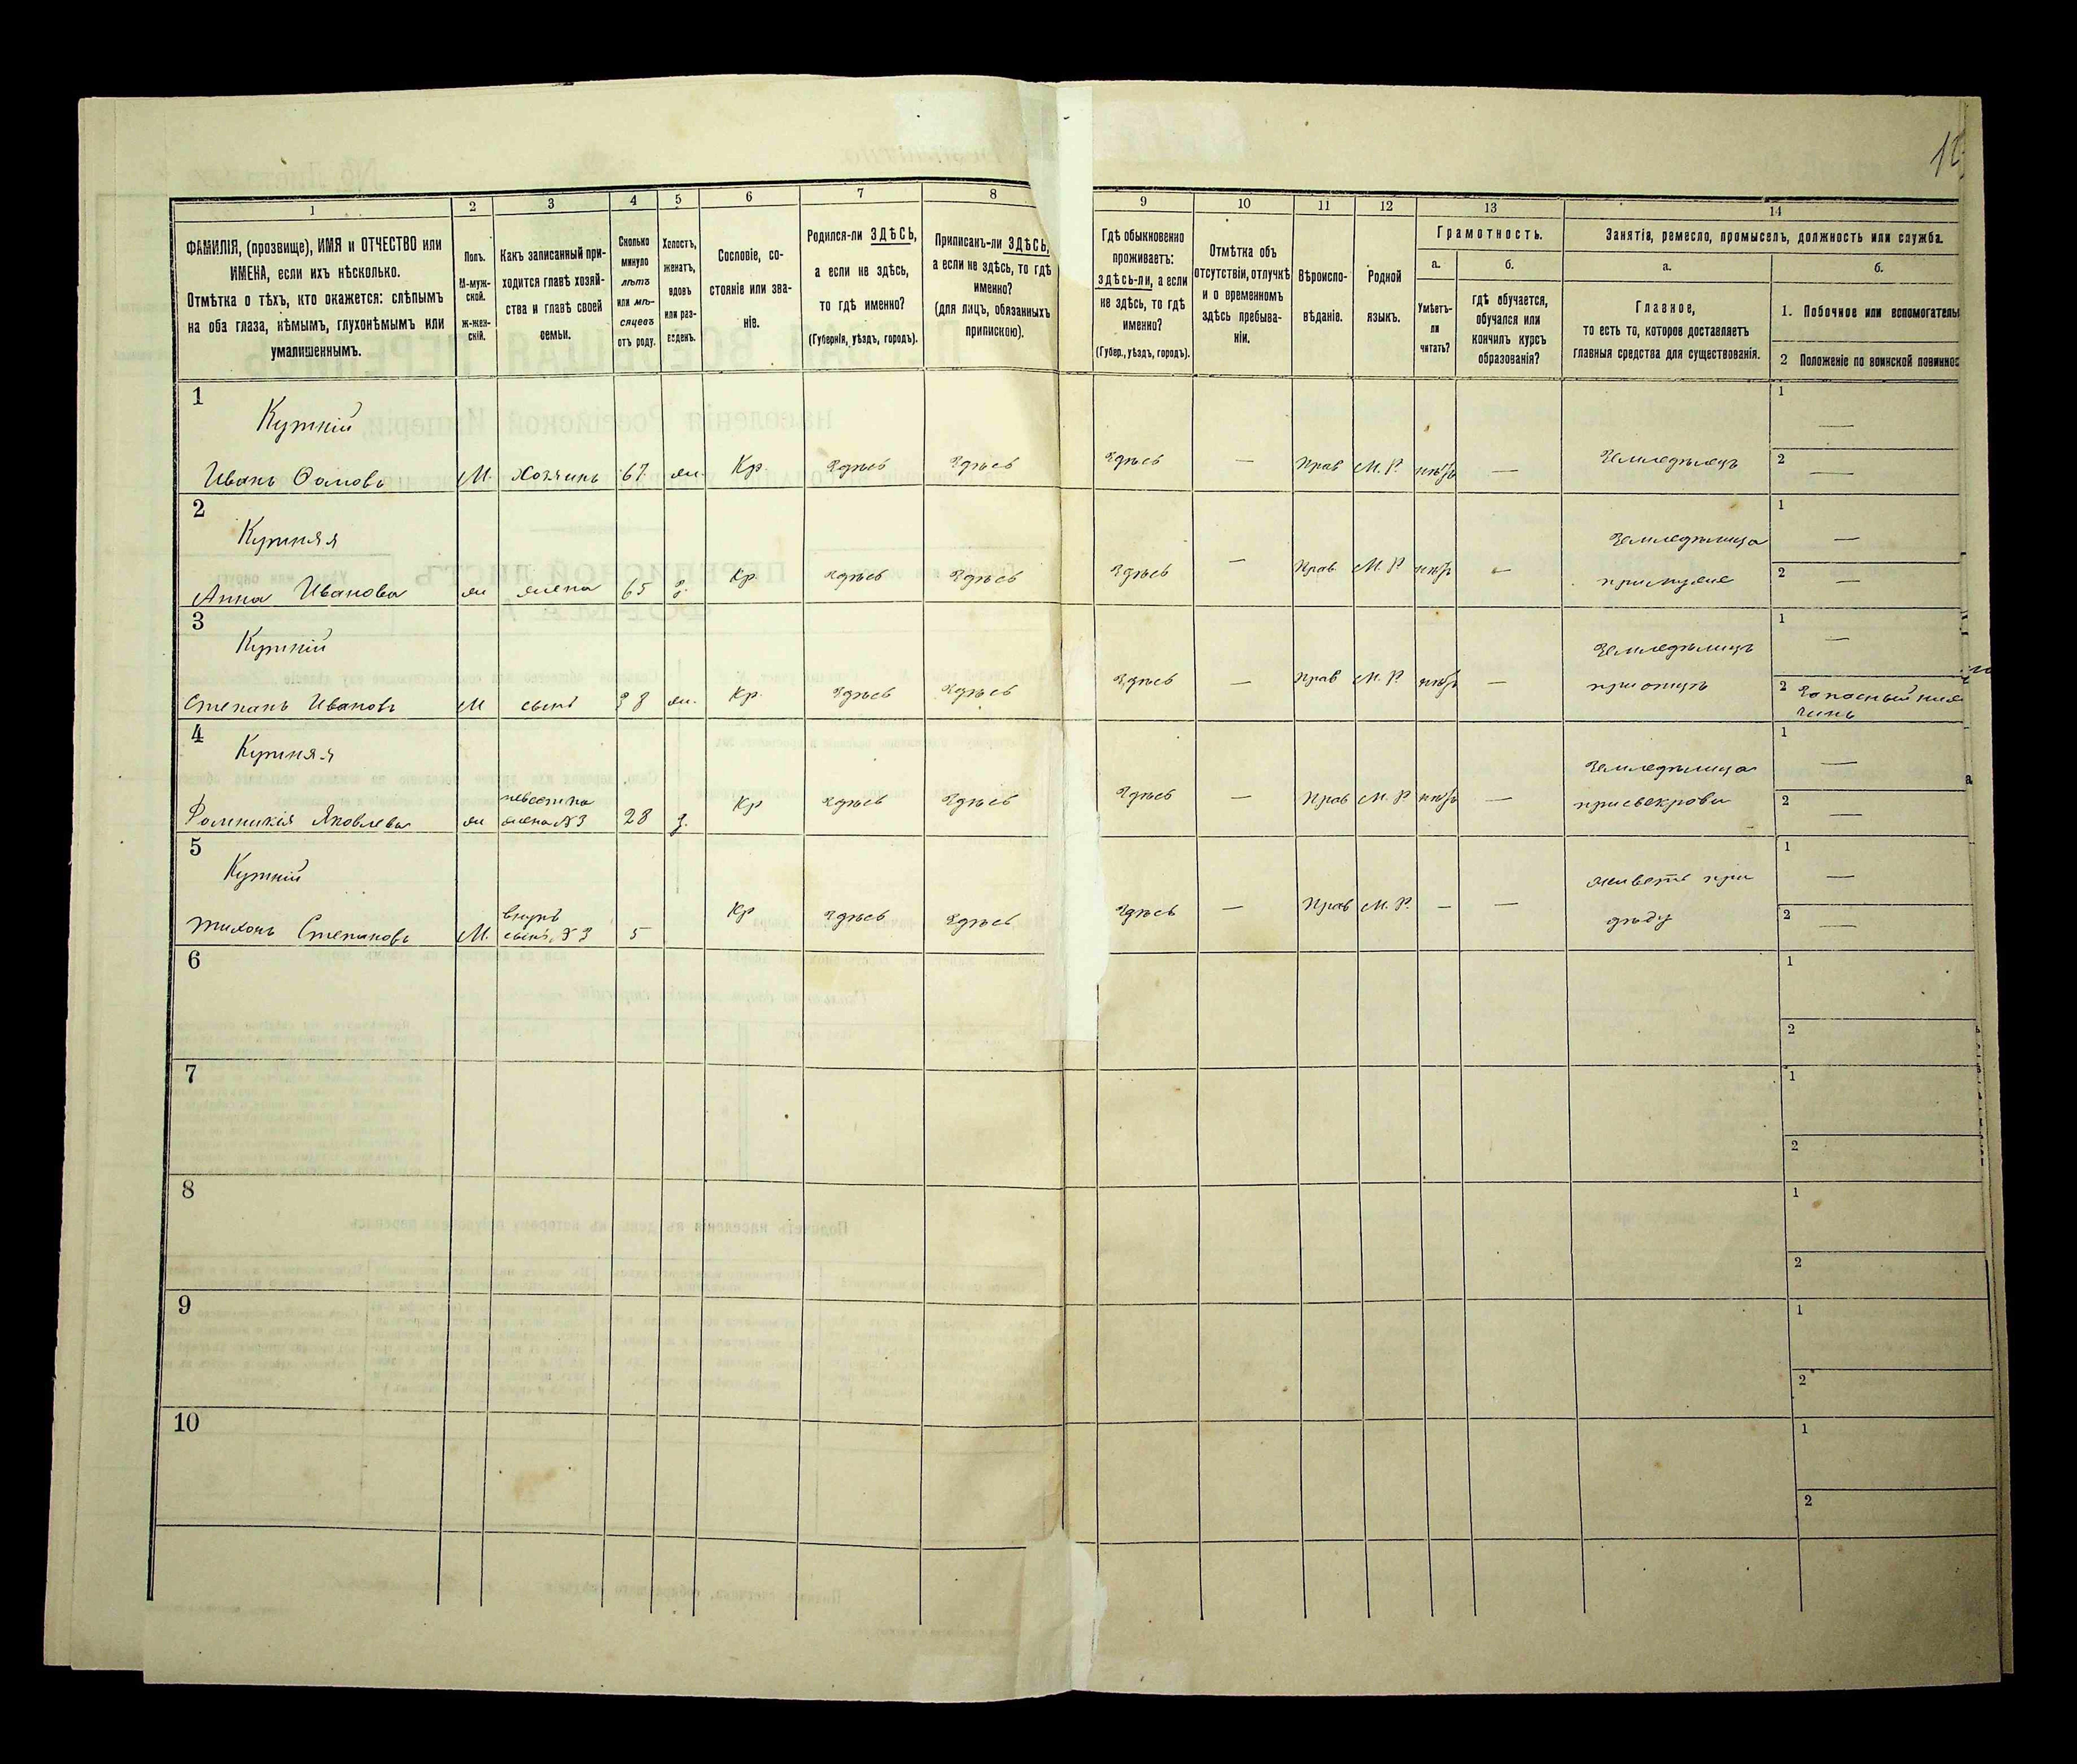 12
1 2 3 4 5 6 7 8 9 10 11 12 13 14
ФАМИЛІЯ, (прозвище), ИМЯ и ОТЧЕСТВО или
ИМЕНА, если ихъ нѣсколько.
Отмѣтка о тѣхъ, кто окажется: слѣпымъ
на оба глаза, нѣмымъ, глухонѣмымъ или
умалишеннымъ.
Полъ.
М-муж-
ской.
ж-жен-
скій.
Какъ записанный при-
ходится главѣ хозяй-
ства и главѣ своей
семьи.
Сколько
минуло
лѣтъ
или мѣ-
сяцевъ
отъ роду.
Холостъ,
женатъ,
вдовъ
или раз-
веденъ.
Сословіе, со-
стояніе или зва-
ніе.
Родился-ли ЗДѢСЬ,
а если не здѣсь,
то гдѣ именно?
(Губернія, уѣздъ, городъ).
Приписанъ-ли ЗДѢСЬ,
а если не здѣсь, то гдѣ
именно?
(для лицъ, обязанныхъ
припискою).
Гдѣ обыкновенно
проживаетъ:
ЗДѢСЬ-ли, а если
не здѣсь, то гдѣ
именно?
(Губер., уѣздъ, городъ).
Отмѣтка объ
отсутствіи, отлучкѣ
и о временномъ
здѣсь пребыва-
ніи.
Вѣроиспо-
вѣданіе.
Родной
языкъ.
Грамотность.
а.
Умѣетъ-
ли
читать?
б.
гдѣ обучается,
обучался или
кончилъ курсъ
образованія?
Занятія, ремесло, промыселъ, должность или служба.
а.
Главное,
то есть то, которое доставляетъ
главныя средства для существованія.
б.
1. Побочное или вспомогатель
2 Положеніе по воинской повиннос
1
Кутній
Иванъ Фомовъ М. Хозяинъ 67 ж. Кр. Здѣсь Здѣсь Здѣсь — Прав М. Р. нѣтъ — Земледѣлецъ
1 —
2 —
2
Кутняя
Анна Иванова ж жена 65 З. Кр. Здѣсь Здѣсь Здѣсь — Прав М. Р. нѣтъ — Земледѣлица
при мужѣ
1 —
2 —
3
Кутній
Степанъ Ивановъ М сынъ 38 ж. Кр. Здѣсь Здѣсь Здѣсь — Прав М. Р. нѣтъ — Земледѣлецъ
при отцѣ
1 —
2 Запасный
чинъ
4
Кутняя
Яковлева ж невестка
жена №3 28 З. Кр Здѣсь Здѣсь Здѣсь — Прав М. Р. нѣтъ — Земледѣлица
при свекрови
1 —
2 —
5
Кутній
Тихонъ Степановъ М. внукъ
сынъ №3 5 Кр Здѣсь Здѣсь Здѣсь — Прав М. Р. — — живетъ при
дѣду
1 —
2 —
6
1
2
7
1
2
8
1
2
9
1
2
10
1
2